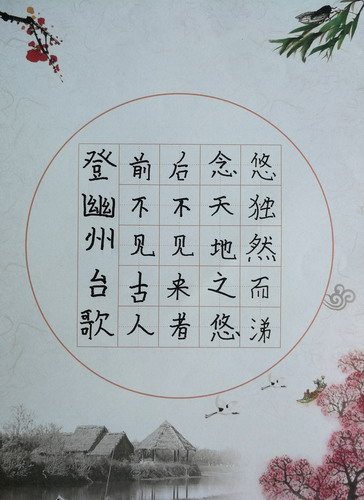 登幽州台歌
前不见古人
后不见来者
念天地之悠
悠独然而涕